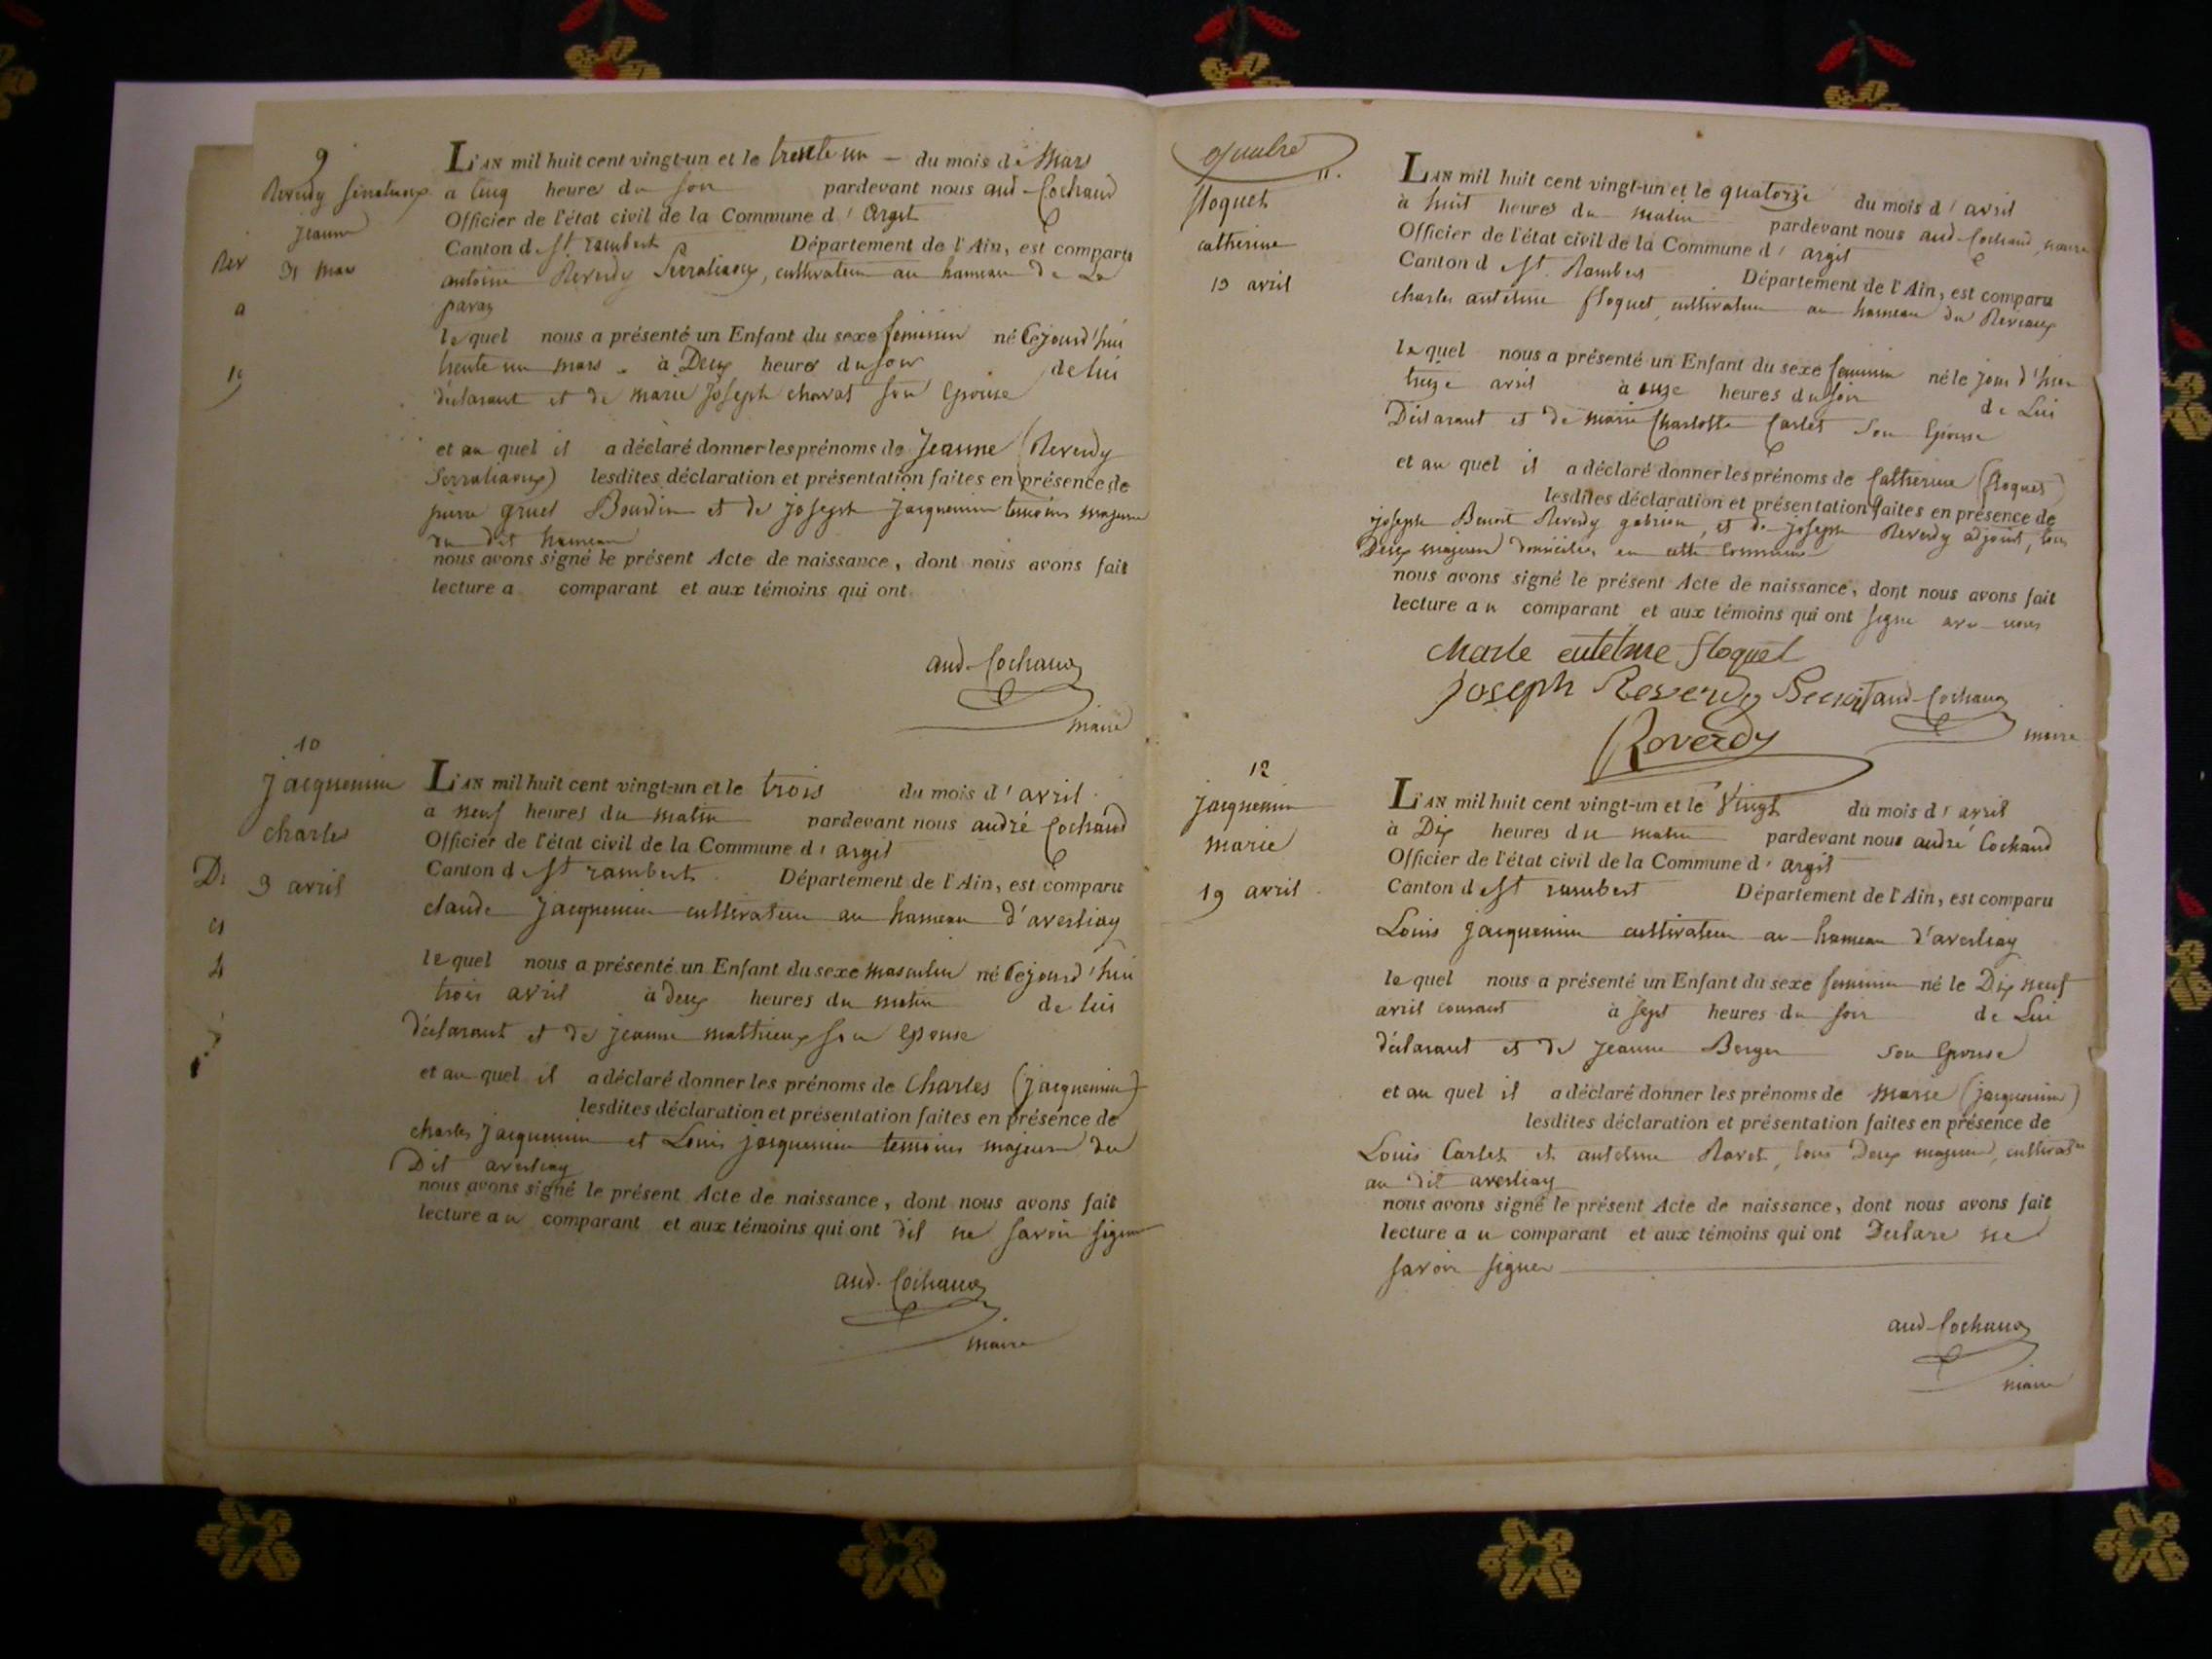 9
Reverdy Serraliaoux
Jeanne
31 Mars
L'AN mil huit cent vingt-un et le trente un - du mois de Mars
a Cinq heures du soir pardevant nous and. Cochaud
Officier de l'état civil de la Commune d' Argit
Canton d St. rambert Département de l'Ain, est comparu
antoine Reverdy Serraliaoux, cultivateur au hameau de La
paraz
lequel nous a présenté un Enfant du sexe feminin né Cejourd'hui
trente un mars à Deux heures du soir de lui
déclarant et de marie Joseph chavat son Epouse
et au quel il a déclaré donner les prénoms de Jeanne (Reverdy
Serraliaoux) lesdites déclaration et présentation faites en présence de
pierre gruel Bourdin et de joseph jacquemin temoins majeurs
du dit hameau
nous avons signé le présent Acte de naissance, dont nous avons fait
lecture a comparant et aux témoins qui ont
and. Cochaud
maire
10
jacquemin
charles
3 avril
L'AN mil huit cent vingt-un et le trois du mois d' avril
a neuf heures du matin pardevant nous andré Cochaud
Officier de l'état civil de la Commune d' argit
Canton d St rambert Département de l'Ain, est comparu
claude jacquemin cultivateur au hameau d'averliay
lequel nous a présenté un Enfant du sexe masculin né Cejourd'hui
trois avril à deux heures du matin de lui
déclarant et de jeanne mathieux son Epouse
et au quel il a déclaré donner les prénoms de Charles (jacquemin)
lesdites déclaration et présentation faites en présence de
charles jacquemin et Louis jacquemin temoins majeurs du
Dit averliay
nous avons signé le présent Acte de naissance, dont nous avons fait
lecture au comparant et aux témoins qui ont dit ne savoir signer
and. Cochaud
maire
11.
floquet
catherine
13 avril
L'AN mil huit cent vingt-un et le quatorze du mois d' avril
à huit heures du matin pardevant nous and. Cochaud, maire
Officier de l'état civil de la Commune d' argit
Canton d St. Rambert Département de l'Ain, est comparu
charles antelme floquet, cultivateur au hameau du Reviaux
lequel nous a présenté un Enfant du sexe feminin né le jour d'hier
treize avril à onze heures du soir de Lui
Déclarant et de marie Charlotte Carlet son Epouse
et au quel il a déclaré donner les prénoms de Catherine (floquet)
lesdites déclaration et présentation faites en présence de
joseph Benoit Reverdy gabrion, et de joseph Reverdy adjoint, tous
Deux majeurs domiciliés en cette Commune
nous avons signé le présent Acte de naissance, dont nous avons fait
lecture au comparant et aux témoins qui ont signé avec nous
charle entelme floquet
Joseph Reverdy Benoit and. Cochaud
Roverdy maire
12
jacquemin
marie
19 avril
L'AN mil huit cent vingt-un et le Vingt du mois d' avril
à Dix heures du matin pardevant nous andré Cochaud
Officier de l'état civil de la Commune d' argit
Canton d St rambert Département de l'Ain, est comparu
Louis jacquemin cultivateur au hameau d'averliay
lequel nous a présenté un Enfant du sexe feminin né le Dix neuf
avril courant à sept heures du soir de Lui
déclarant et de jeanne Berger son Epouse
et au quel il a déclaré donner les prénoms de marie (jacquemin)
lesdites déclaration et présentation faites en présence de
Louis Carlet et antelme Ravet, tous Deux majeurs, cultivatrs
au dit averliay
nous avons signé le présent Acte de naissance, dont nous avons fait
lecture au comparant et aux témoins qui ont Declare ne
savoir signer
and. Cochaud
maire